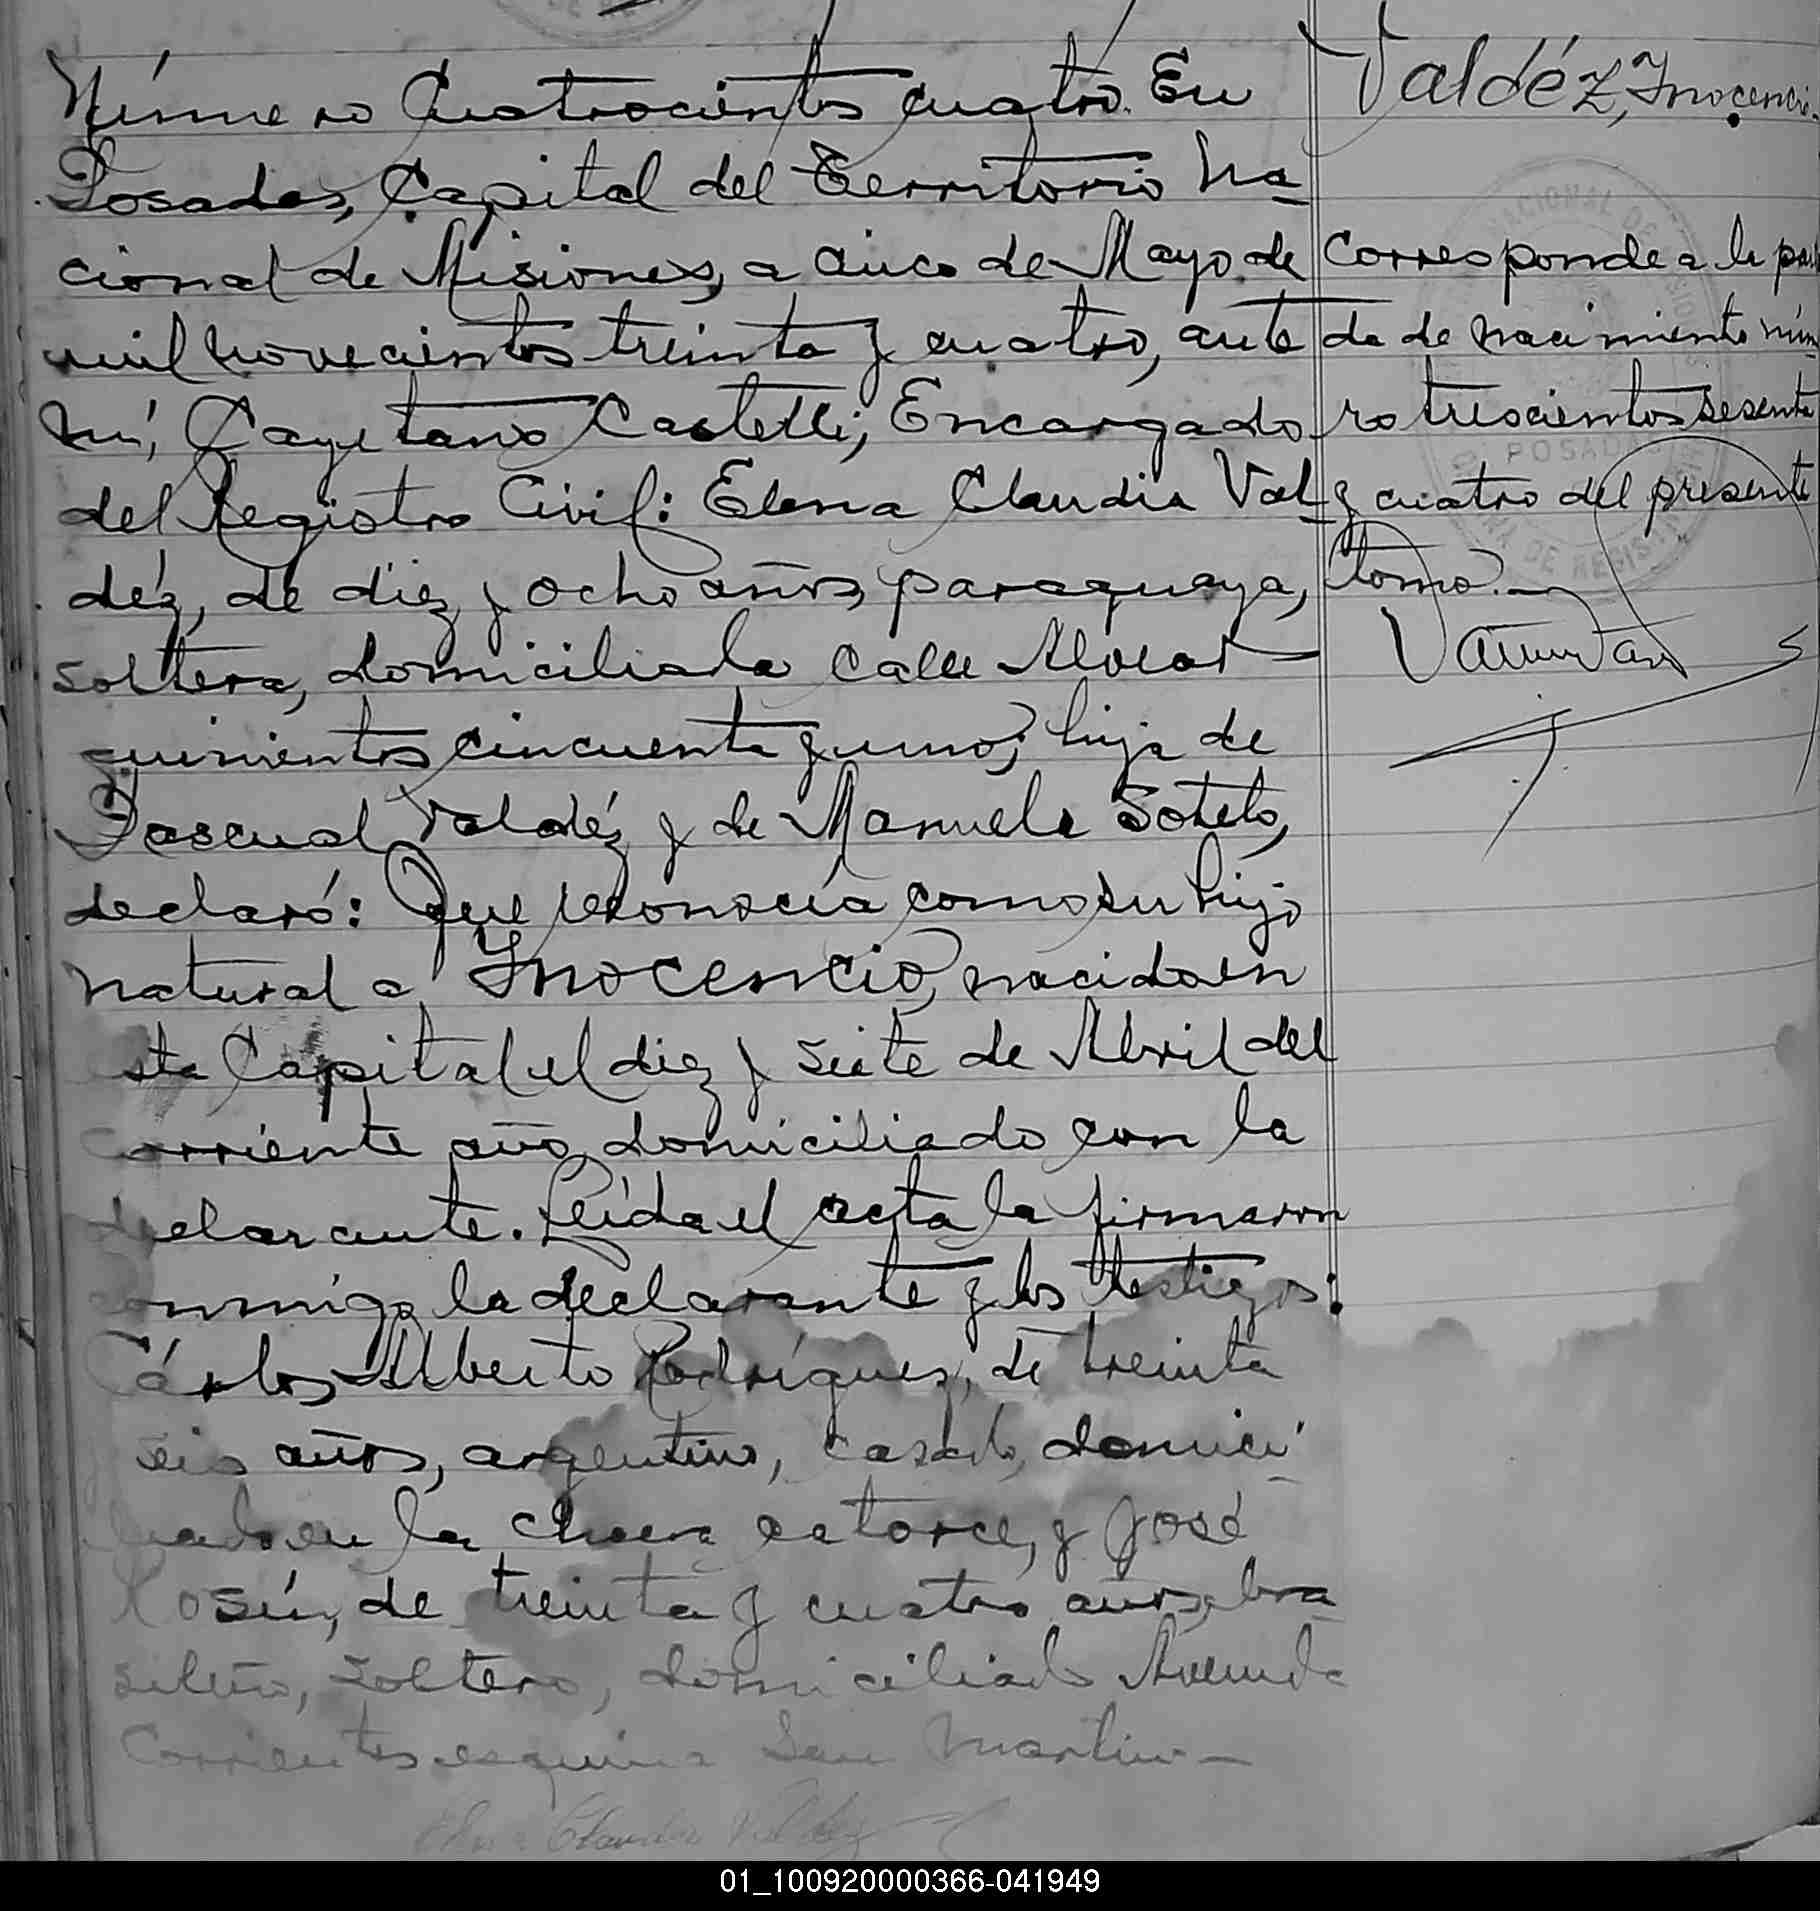 Número Cuatrocientos cuatro. En
Posadas, Capital del Territorio Na-
cional de Misiones, a cinco de Mayo de
mil novecientos treinta y cuatro, ante
mí, Cayetano Castelli, Encargado
del Registro Civil: Elena Claudia Val-
déz, de diez y ocho años, paraguaya,
soltera, domiciliada calle Alvear
quinientos cincuenta y uno, hija de
Pascual Valdéz y de Manuela Sotelo,
declaró: Que reconocía como su hijo
natural a Inocencio, nacido en
sta Capital el diez y siete de Abril del
corriente año, domiciliado con la
declarante. Leída el acta la firmaron
conmigo la declarante y los testigos:
Cárlos Alberto Rodríguez, de treinta
seis años, argentino, casado, domici-
liado en la chacra catorce, y José
de treinta y cuatro años, bra-
sileño, soltero, domiciliado Avenida
Corrientes esquina San Martin—
Elena Claudia Valdéz
Valdéz, Inocencio.
Corresponde a la parti
da de nacimiento núme
ro trescientos sesenta
y cuatro del presente
tomo.—
NACIONAL DE MISIONES
POSADAS
DE REGISTRO
01_100920000366-041949